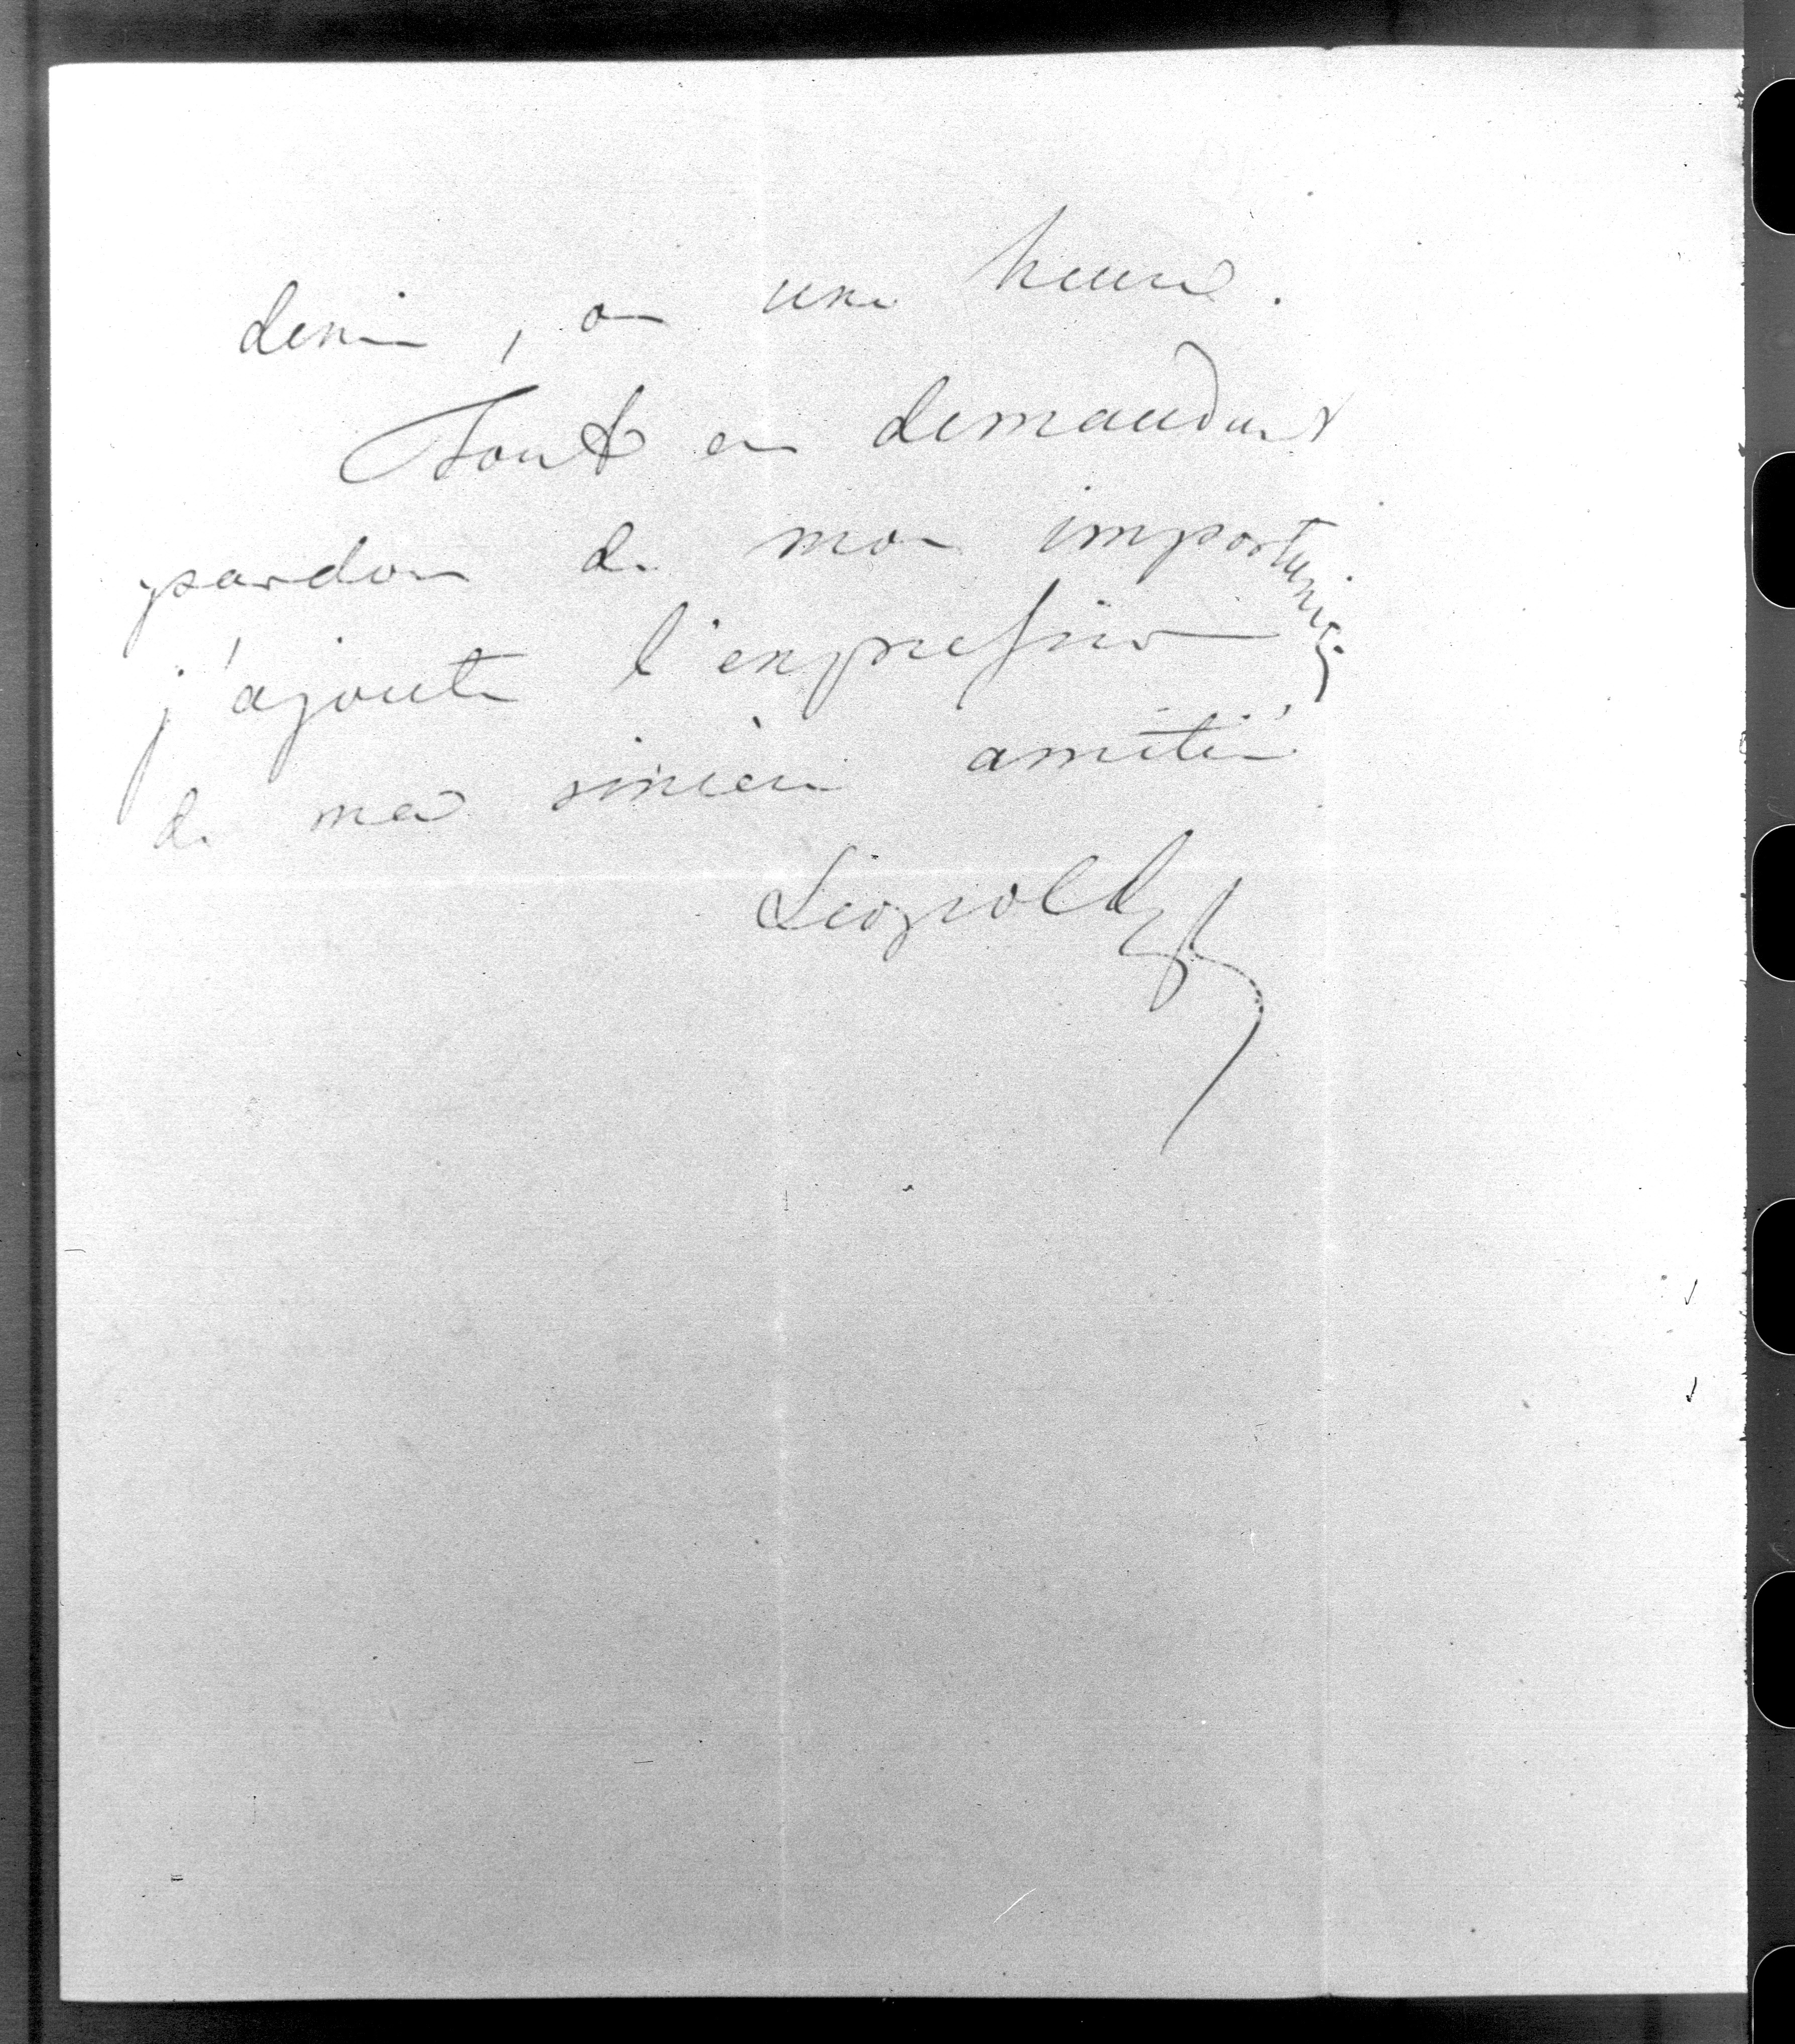 demie, ou une heure.
Tout en demandant
pardon de mon importunité,
j'ajoute l'expression
de ma sincère amitié
Léopold